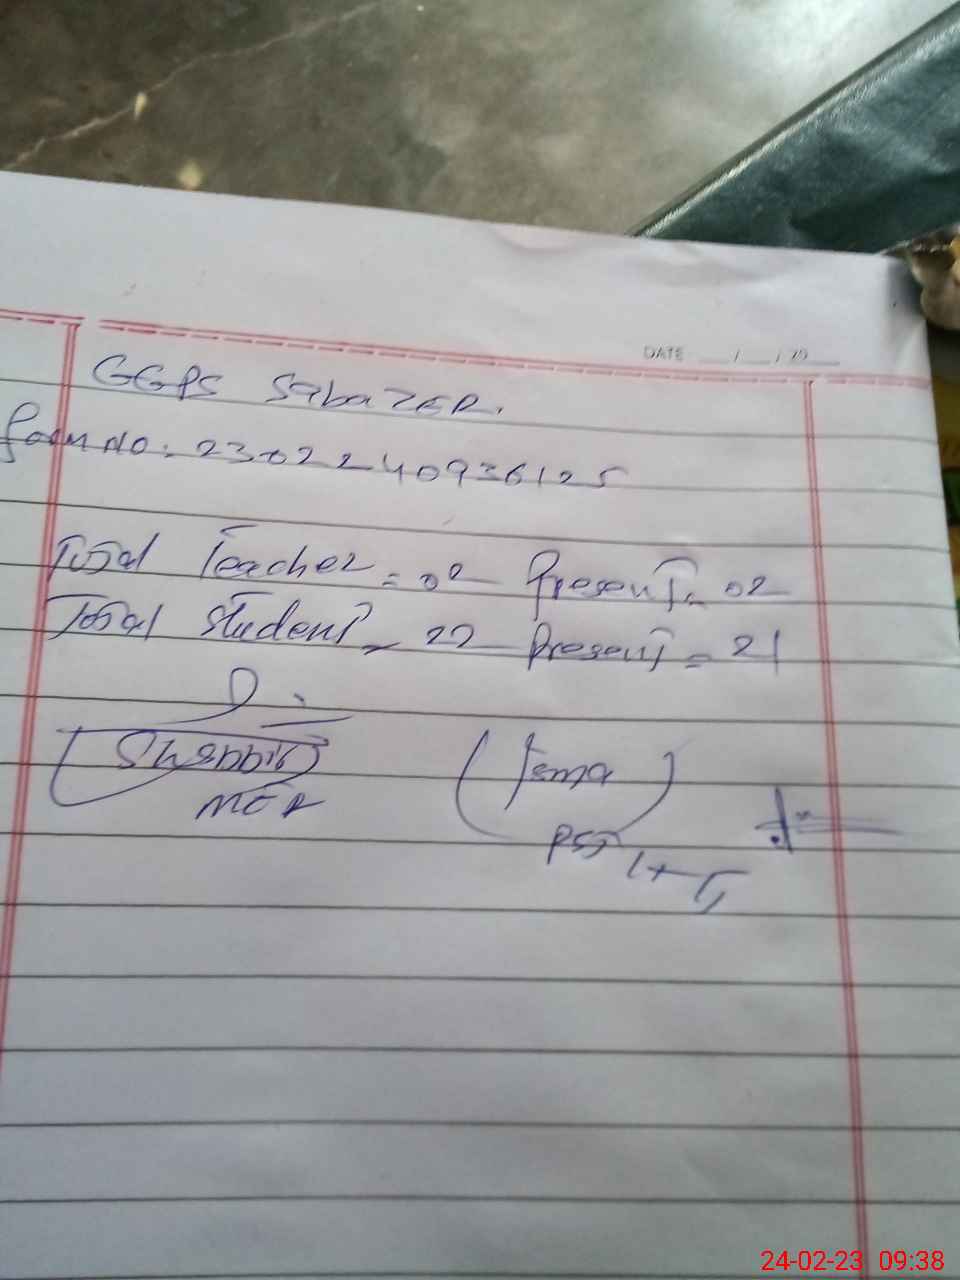 DATE / / 20
GGPS SabaZER.
form NO: 2302240936125
Total Teacher = 02 Present = 02
Total Student = 22 Present = 21
Shabbir
MEA
PST
24-02-23 09:38